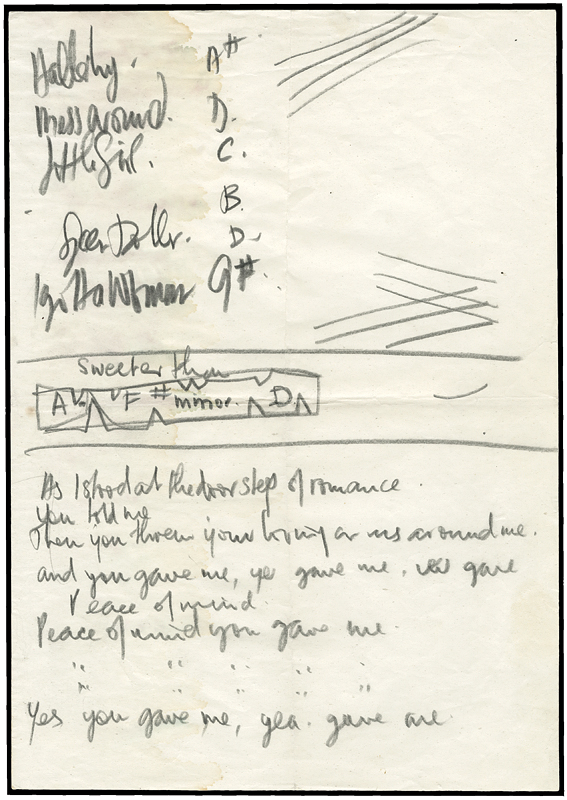 Hallelujy. A#
Mess around. D.
Little Girl. C.
B.
Greer Dollar. D-
I gotta Woman G#.
sweeter than
A F# minor. D
As I stood at the doorstep of romance.
you told me
Then you threw your loving arms around me.
and you gave me, yes gave me. yes gave
Peace of mind.
Peace of mind you gave me.
" " " " "
" " " " "
Yes you gave me, yea. gave me.